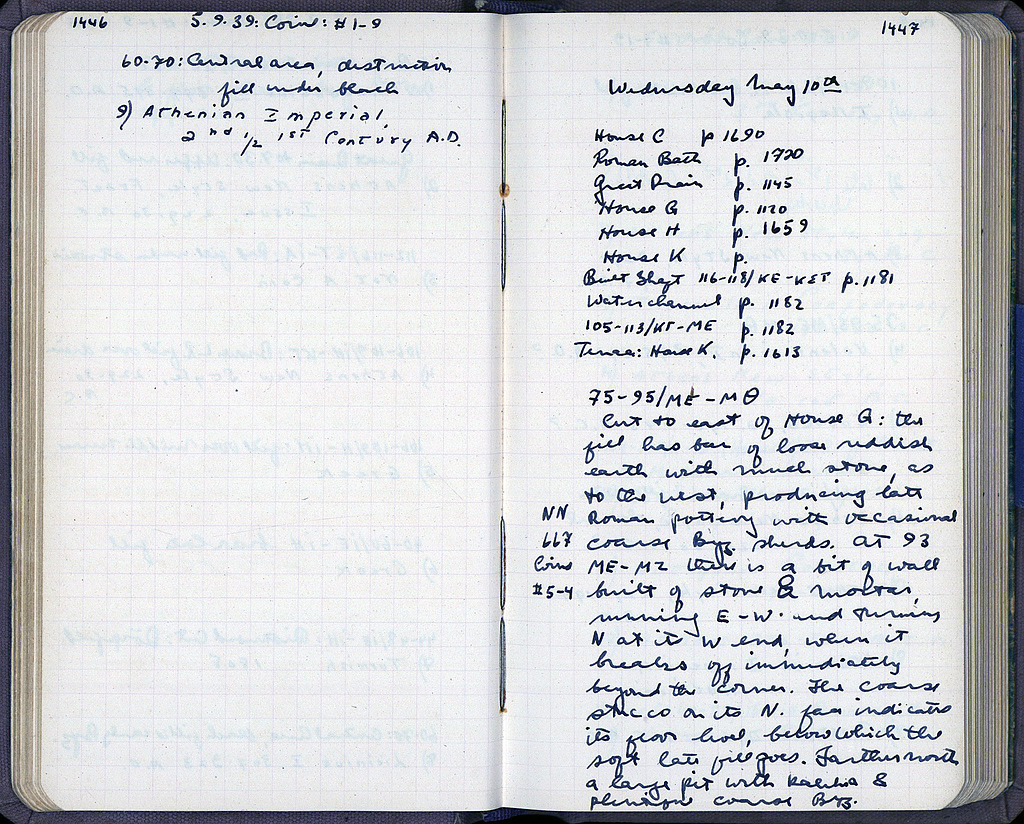 1446
5.9.39: Coins: #1-9
60-70: Central area, destruction
fill under black
9) Athenian Imperial,
2nd 1/2 1st Century A.D.
1447
Wednesday May 10th
House C p 1690
Roman Bath p. 1720
Great Drain p. 1145
House G p. 1120
House H p. 1659
House K p.
Built Shaft 116-118/ΚΕ-ΚΣΤ p. 1181
Water channel p. 1182
105-113/ΚΓ-ΜΕ p. 1182
House K. p. 1613
75-95/ΜΕ-ΜΘ
Cut to east of House G: the
fill has been of loose reddish
earth with much stone, as
to the west, producing late
NN Roman pottery with occasional
667 coarse Byz. sherds. At 93
Coins ME-MZ there is a bit of wall
#5-4 built of stone & mortar,
running E-W. and turning
N at its W end, when it
breaks off immediately
beyond the corner. The coarse
stucco on its N. face indicates
its floor level, below which the
soft late fill goes. Farther north
a large pit with &
coarse Byz.